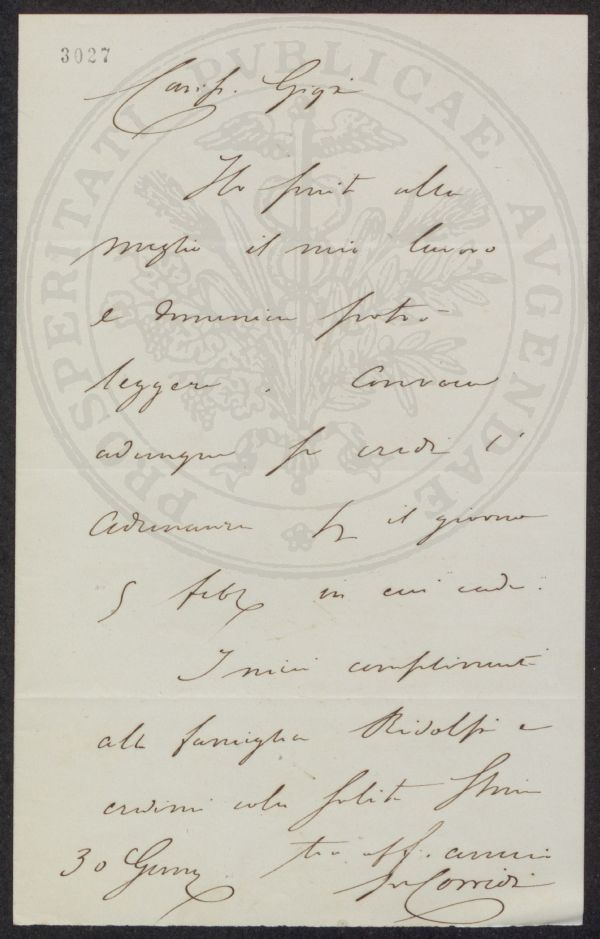 3027
PROSPERITATI PVBLICAE AVGENDAE
Cariss. Gigi
Ho finito alla
meglio il mio lavoro
e domenica potrò
leggere. Convoca
adunque se credi l'
adunanza per il giorno
5 febb. in cui cade.
I miei complimenti
alla famiglia Ridolfi e
credimi colla solita stima
30 Genn.
tuo aff. amico
Corridi